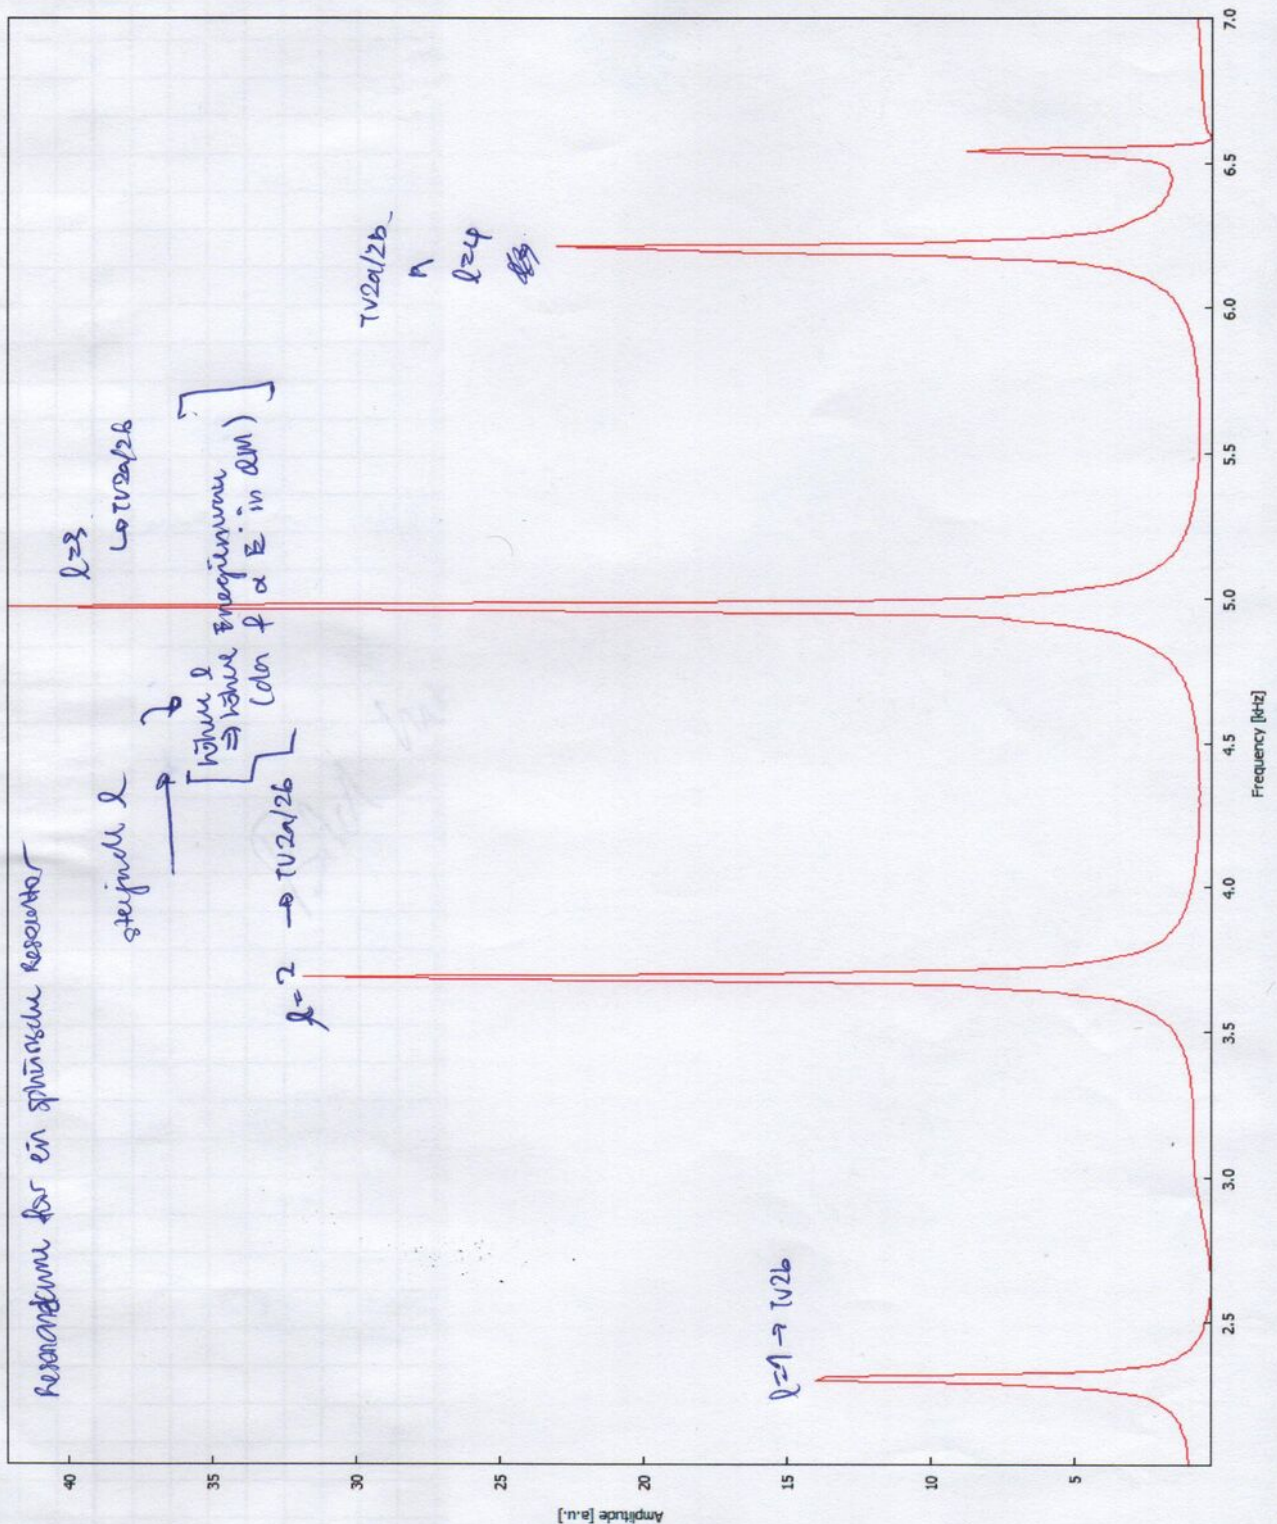 Resonanzkurve für ein sphärische Resonator
steigende l
[höhere l
⇒ höhere Energieniveau
(da f α E in QM)]
l=3
↳ TV2a/2b
TV2a/2b
l=4
l=2 → TV2a/2b
l=1 → TV2b
Amplitude [a.u.]
40
35
30
25
20
15
10
5
2.5
3.0
3.5
4.0
4.5
5.0
5.5
6.0
6.5
7.0
Frequency [kHz]